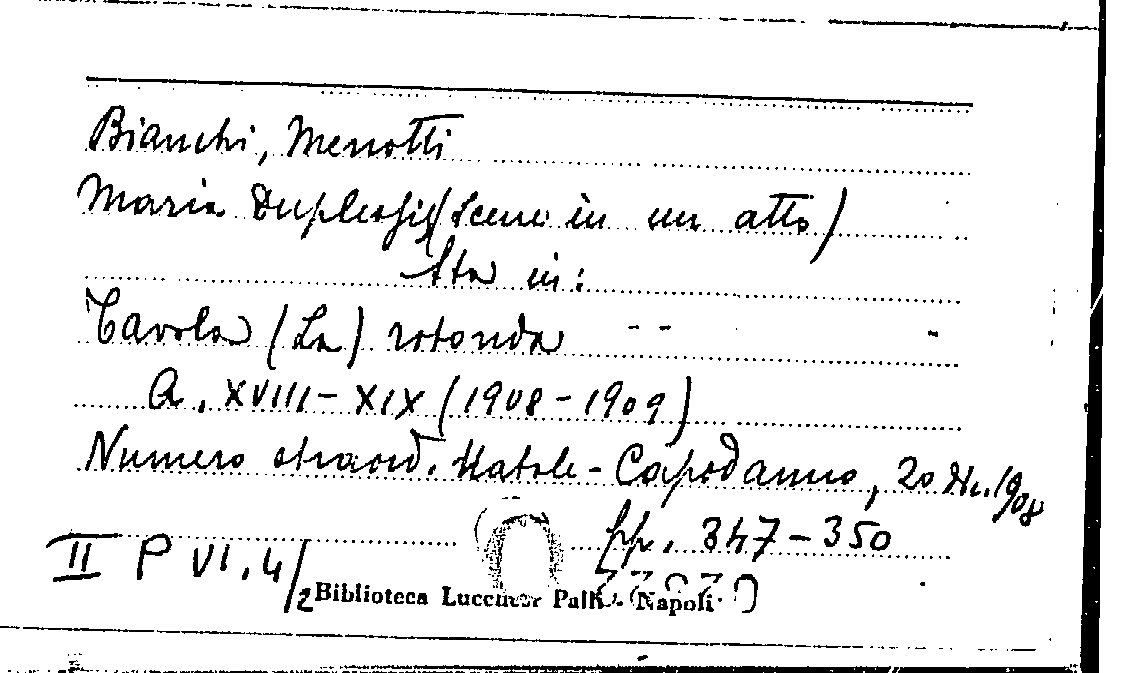 Bianchi, Menotti
Maria Duplessis (Scene in un atto)
Sta in:
Tavola (La) rotonda
A. XVIII - XIX (1908 - 1909)
Numero straord. Natale - Capodanno, 20 Dic. 1908
pp. 347 - 350
II P VI. 4/2
Biblioteca Lucchesi Palli - Napoli